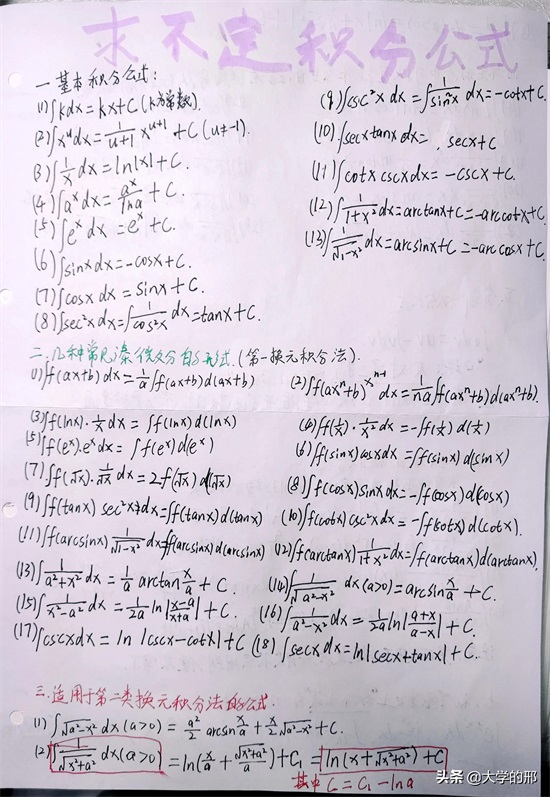 求不定积分公式
一.基本积分公式:
(1)∫kdx=kx+C(k为常数).
(2)∫x^u dx=\frac{1}{u+1}x^{u+1}+C(u≠-1).
(3)∫\frac{1}{x}dx=ln|x|+C.
(4)∫a^x dx=\frac{a^x}{lna}+C.
(5)∫e^x dx=e^x+C.
(6)∫sinxdx=-cosx+C.
(7)∫cosxdx=sinx+C.
(8)∫sec²xdx=∫\frac{1}{cos²x}dx=tanx+C.
(9)∫csc²xdx=∫\frac{1}{sin²x}dx=-cotx+C.
(10)∫secxtanxdx=secx+C
(11)∫cotxcscxdx=-cscx+C.
(12)∫\frac{1}{1+x²}dx=arctanx+C=-arccotx+C.
(13)∫\frac{1}{\sqrt{1-x²}}dx=arcsinx+C=-arccosx+C.
二.几种常见凑微分的形式.(第一换元积分法).
(1)∫f(ax+b)dx=\frac{1}{a}∫f(ax+b)d(ax+b)
(2)∫f(ax^n+b)x^{n-1}dx=\frac{1}{na}∫f(ax^n+b)d(ax^n+b).
(3)∫f(lnx)·\frac{1}{x}dx=∫f(lnx)d(lnx)
(4)∫f(\frac{1}{x})·\frac{1}{x²}dx=-∫f(\frac{1}{x})d(\frac{1}{x})
(5)∫f(e^x)·e^x dx=∫f(e^x)d(e^x)
(6)∫f(sinx)cosxdx=∫f(sinx)d(sinx)
(7)∫f(\sqrt{x})·\frac{1}{\sqrt{x}}dx=2∫f(\sqrt{x})d(\sqrt{x})
(8)∫f(cosx)sinxdx=-∫f(cosx)d(cosx)
(9)∫f(tanx)sec²xdx=∫f(tanx)d(tanx)
(10)∫f(cotx)csc²xdx=-∫f(cotx)d(cotx).
(11)∫f(arcsinx)\frac{1}{\sqrt{1-x²}}dx=∫f(arcsinx)d(arcsinx)
(12)∫f(arctanx)\frac{1}{1+x²}dx=∫f(arctanx)d(arctanx)
(13)∫\frac{1}{a²+x²}dx=\frac{1}{a}arctan\frac{x}{a}+C.
(14)∫\frac{1}{\sqrt{a²-x²}}dx(a>0)=arcsin\frac{x}{a}+C.
(15)∫\frac{1}{x²-a²}dx=\frac{1}{2a}ln|\frac{x-a}{x+a}|+C.
(16)∫\frac{1}{a²-x²}dx=\frac{1}{2a}ln|\frac{a+x}{a-x}|+C.
(17)∫cscxdx=ln|cscx-cotx|+C
(18)∫secxdx=ln|secx+tanx|+C.
三.适用于第二类换元积分法的公式.
(1)∫\sqrt{a²-x²}dx(a>0)=\frac{a²}{2}arcsin\frac{x}{a}+\frac{x}{2}\sqrt{a²-x²}+C.
(2)∫\frac{1}{\sqrt{x²+a²}}dx(a>0)=ln(\frac{x}{a}+\frac{\sqrt{x²+a²}}{a})+C₁=ln(x+\sqrt{x²+a²})+C
其中C=C₁-lna
头条@大学的邢